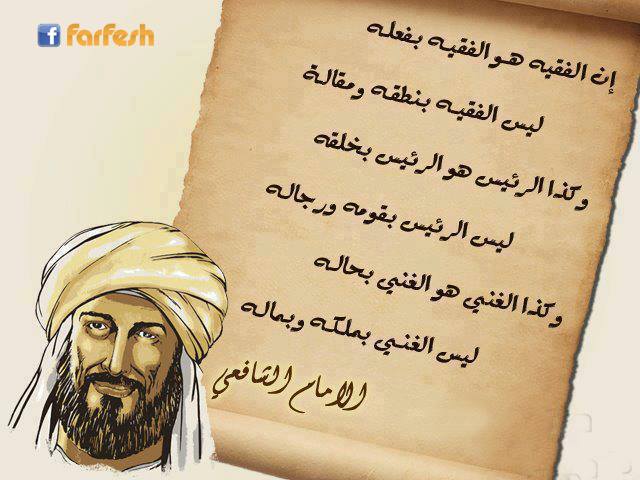 farfesh
إن الفقيه هو الفقيه بفعله
ليس الفقيه بنطقه ومقالة
وكذا الرئيس هو الرئيس بخلقه
ليس الرئيس بقومه ورجاله
وكذا الغني هو الغني بحاله
ليس الغني بملكه وبماله
الامام الشافعي